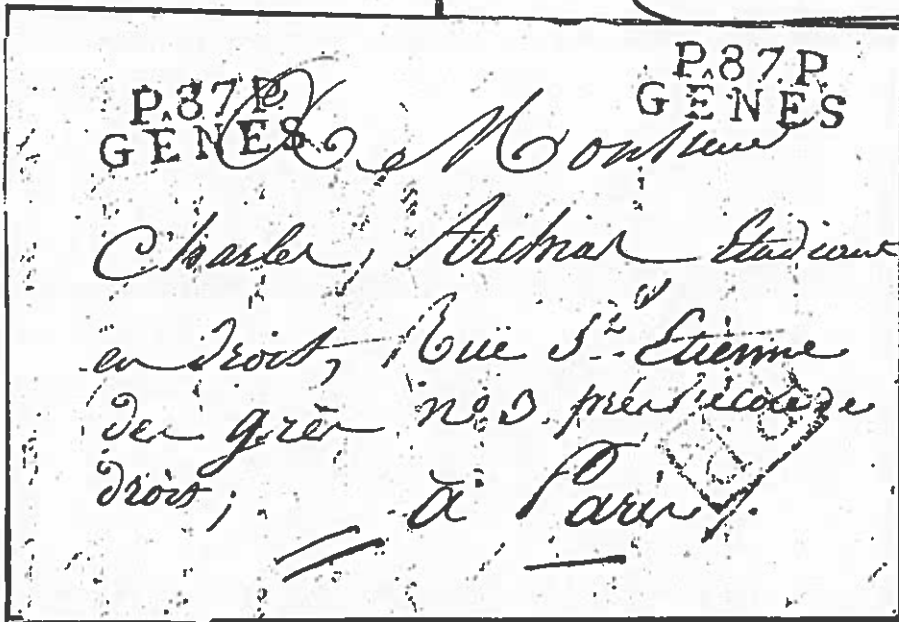 P.87.P. P.87.P.
GÊNES GÊNES
A Monsieur
Charles, Etudiant
en Droit, Rue St. Etienne
des grès no 3 près l'école de
droit;
à Paris.